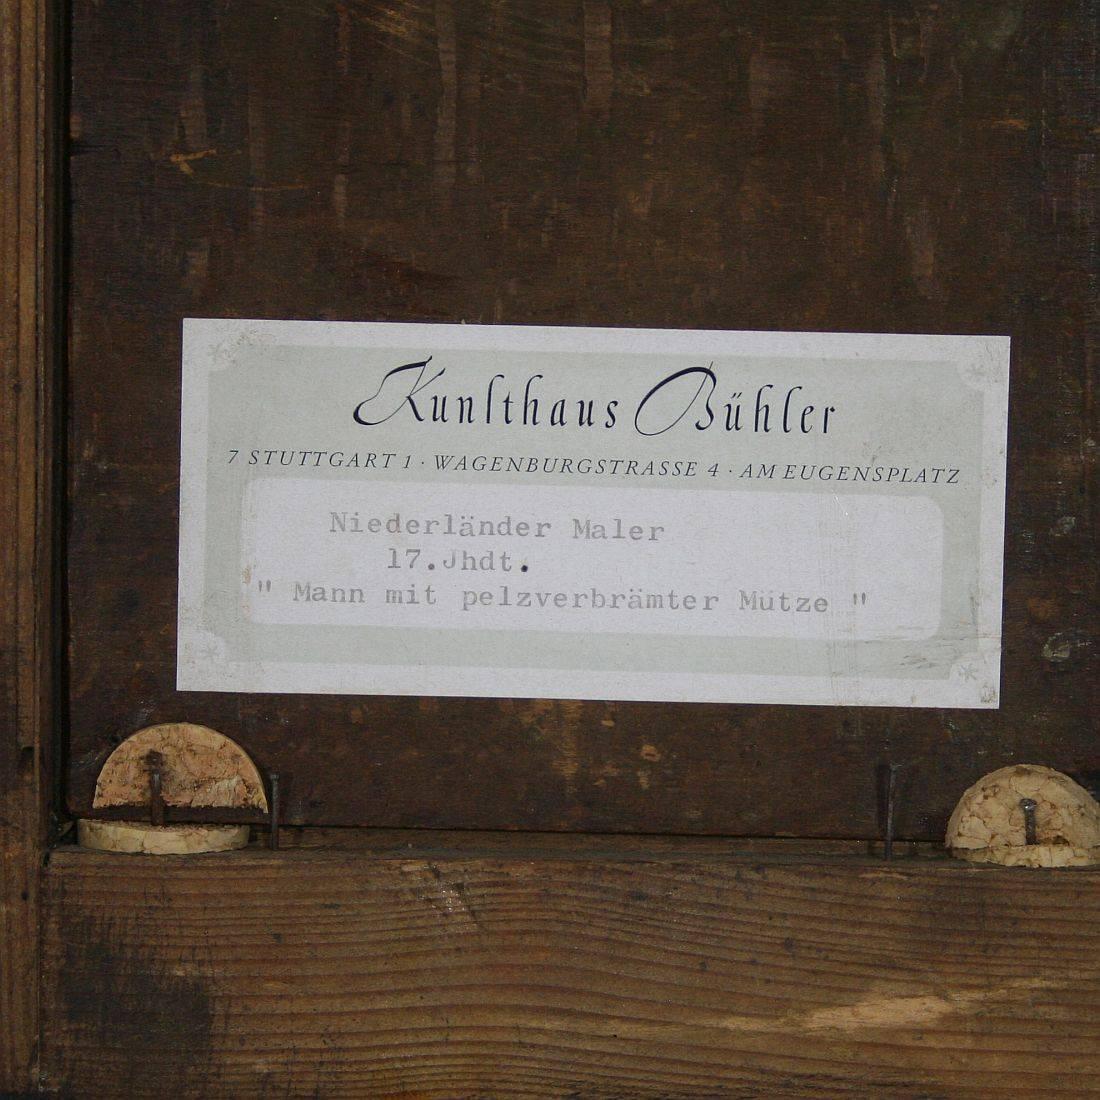 Kunſthaus Bühler
7 STUTTGART 1 · WAGENBURGSTRASSE 4 · AM EUGENSPLATZ
Niederländer Maler
17.Jhdt.
" Mann mit pelzverbrämter Mütze "